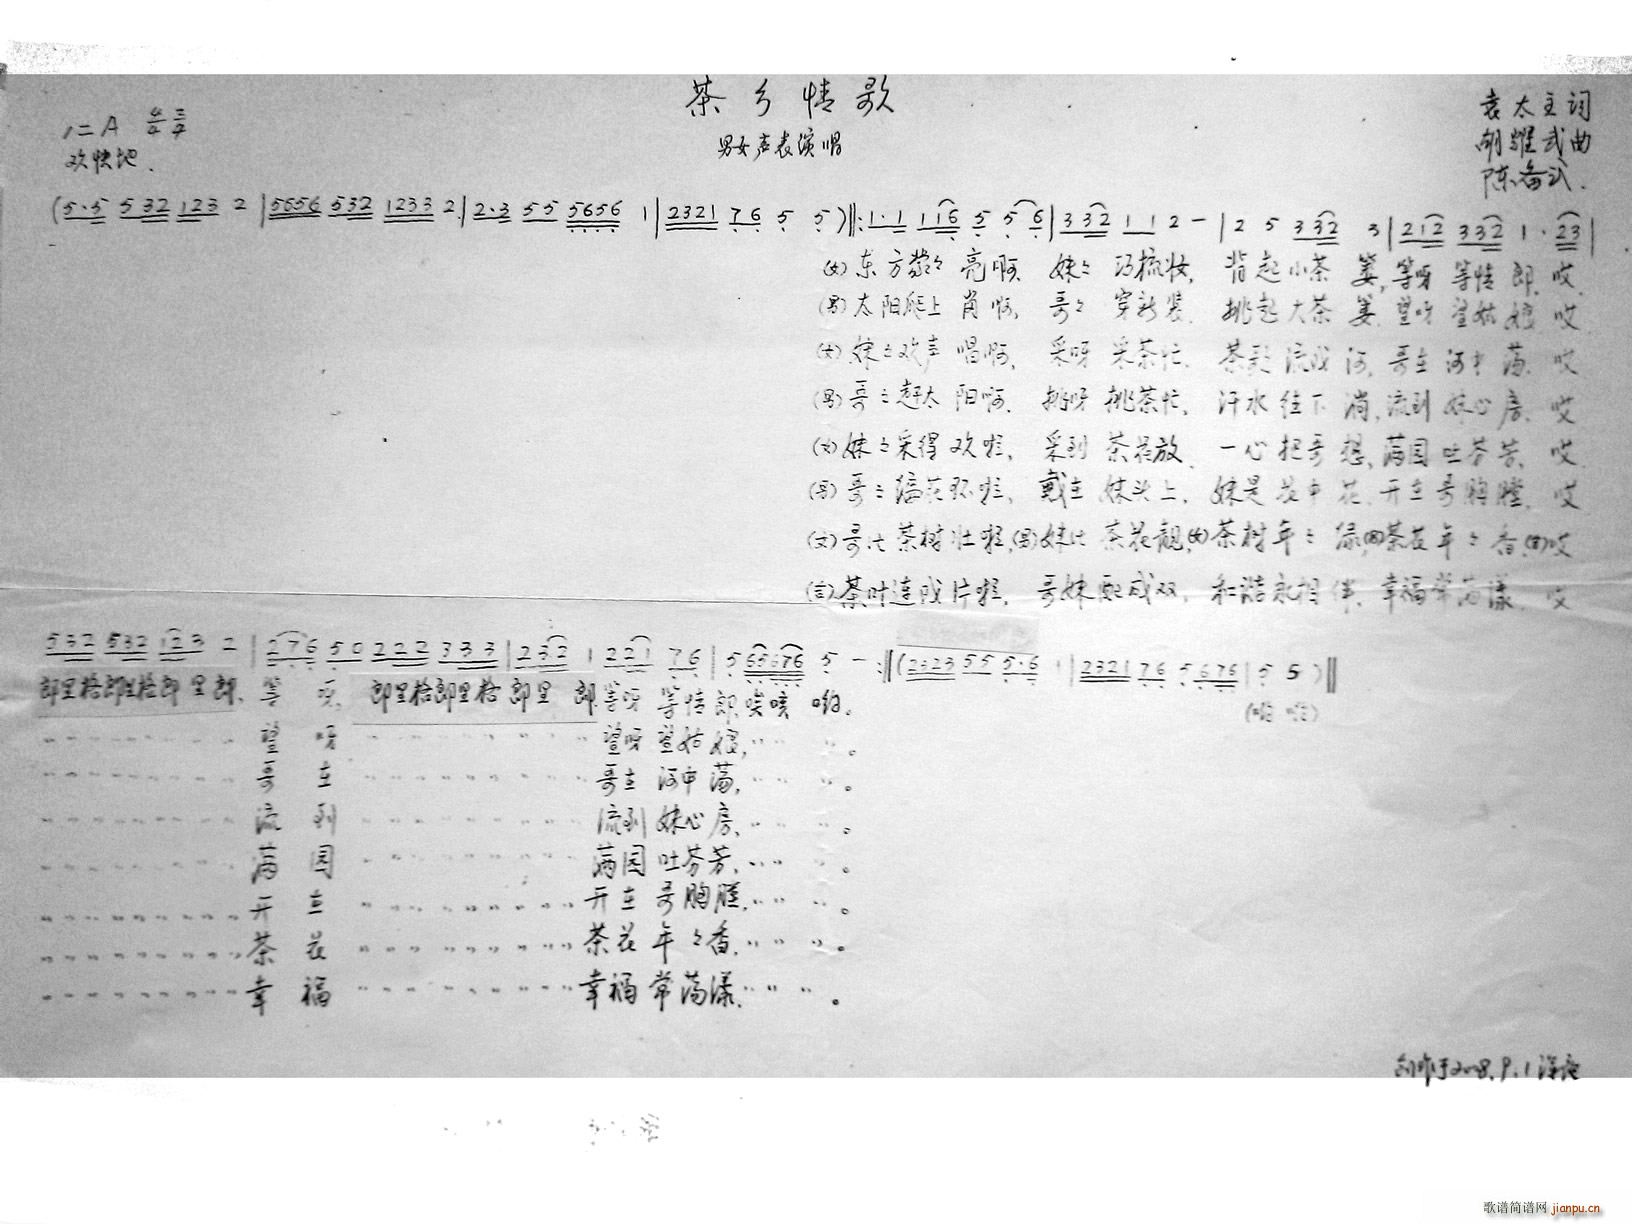 茶乡情歌
男女声表演唱
1=A 4/4 3/4
欢快地.
袁太主词
胡耀武曲
陈备武.
(5·5 532 123 2 |5656 532 1233 2.|2·3 55 5656 1|2321 76 5 5)‖:1·1 116 5 5 6|332 11 2 -|2 5 332 3|212 332 1·23|
(女)东方蒙々亮啊,妹々巧梳妆,背起小茶篓,等呀等情郎,哎
(男)太阳爬上肖啊,哥々穿新装,挑起大茶篓,望呀望姑娘,哎
(女)妹々欢声唱啊,采呀采茶忙,茶歌流成河,哥在河中荡,哎
(男)哥々赶太阳啊,挑呀挑茶忙,汗水往下淌,流到妹心房,哎
(女)妹々采得欢啦,采到茶花放,一心把哥想,满园吐芬芳,哎
(男)哥々编花环啦,戴在妹头上,妹是花中花,开在哥胸膛,哎
(女)哥比茶树壮啦,(男)妹比茶花靓,(女)茶树年々绿,(男)茶花年々香,(合)哎
(合)茶叶连成片啦,哥妹配成双,和谐永相伴,幸福常荡漾,哎
532 532 123 2 |276 50 222 333|232 1 221 76|5 65676 5 - :‖(2323 55 5·6 1|2321 76 5 676|5 5)‖
郎里格郎里格郎里郎,等呀,郎里格郎里格郎里郎.等呀等情郎,唉咳哟。 (哟哟)
望呀 望呀望姑娘,
哥在 哥在河中荡,
流到 流到妹心房,
满园 满园吐芬芳,
开在 开在哥胸膛,
茶花 茶花年々香,
幸福 幸福常荡漾,
创作于2008.9.1深夜
歌谱简谱网 jianpu.cn